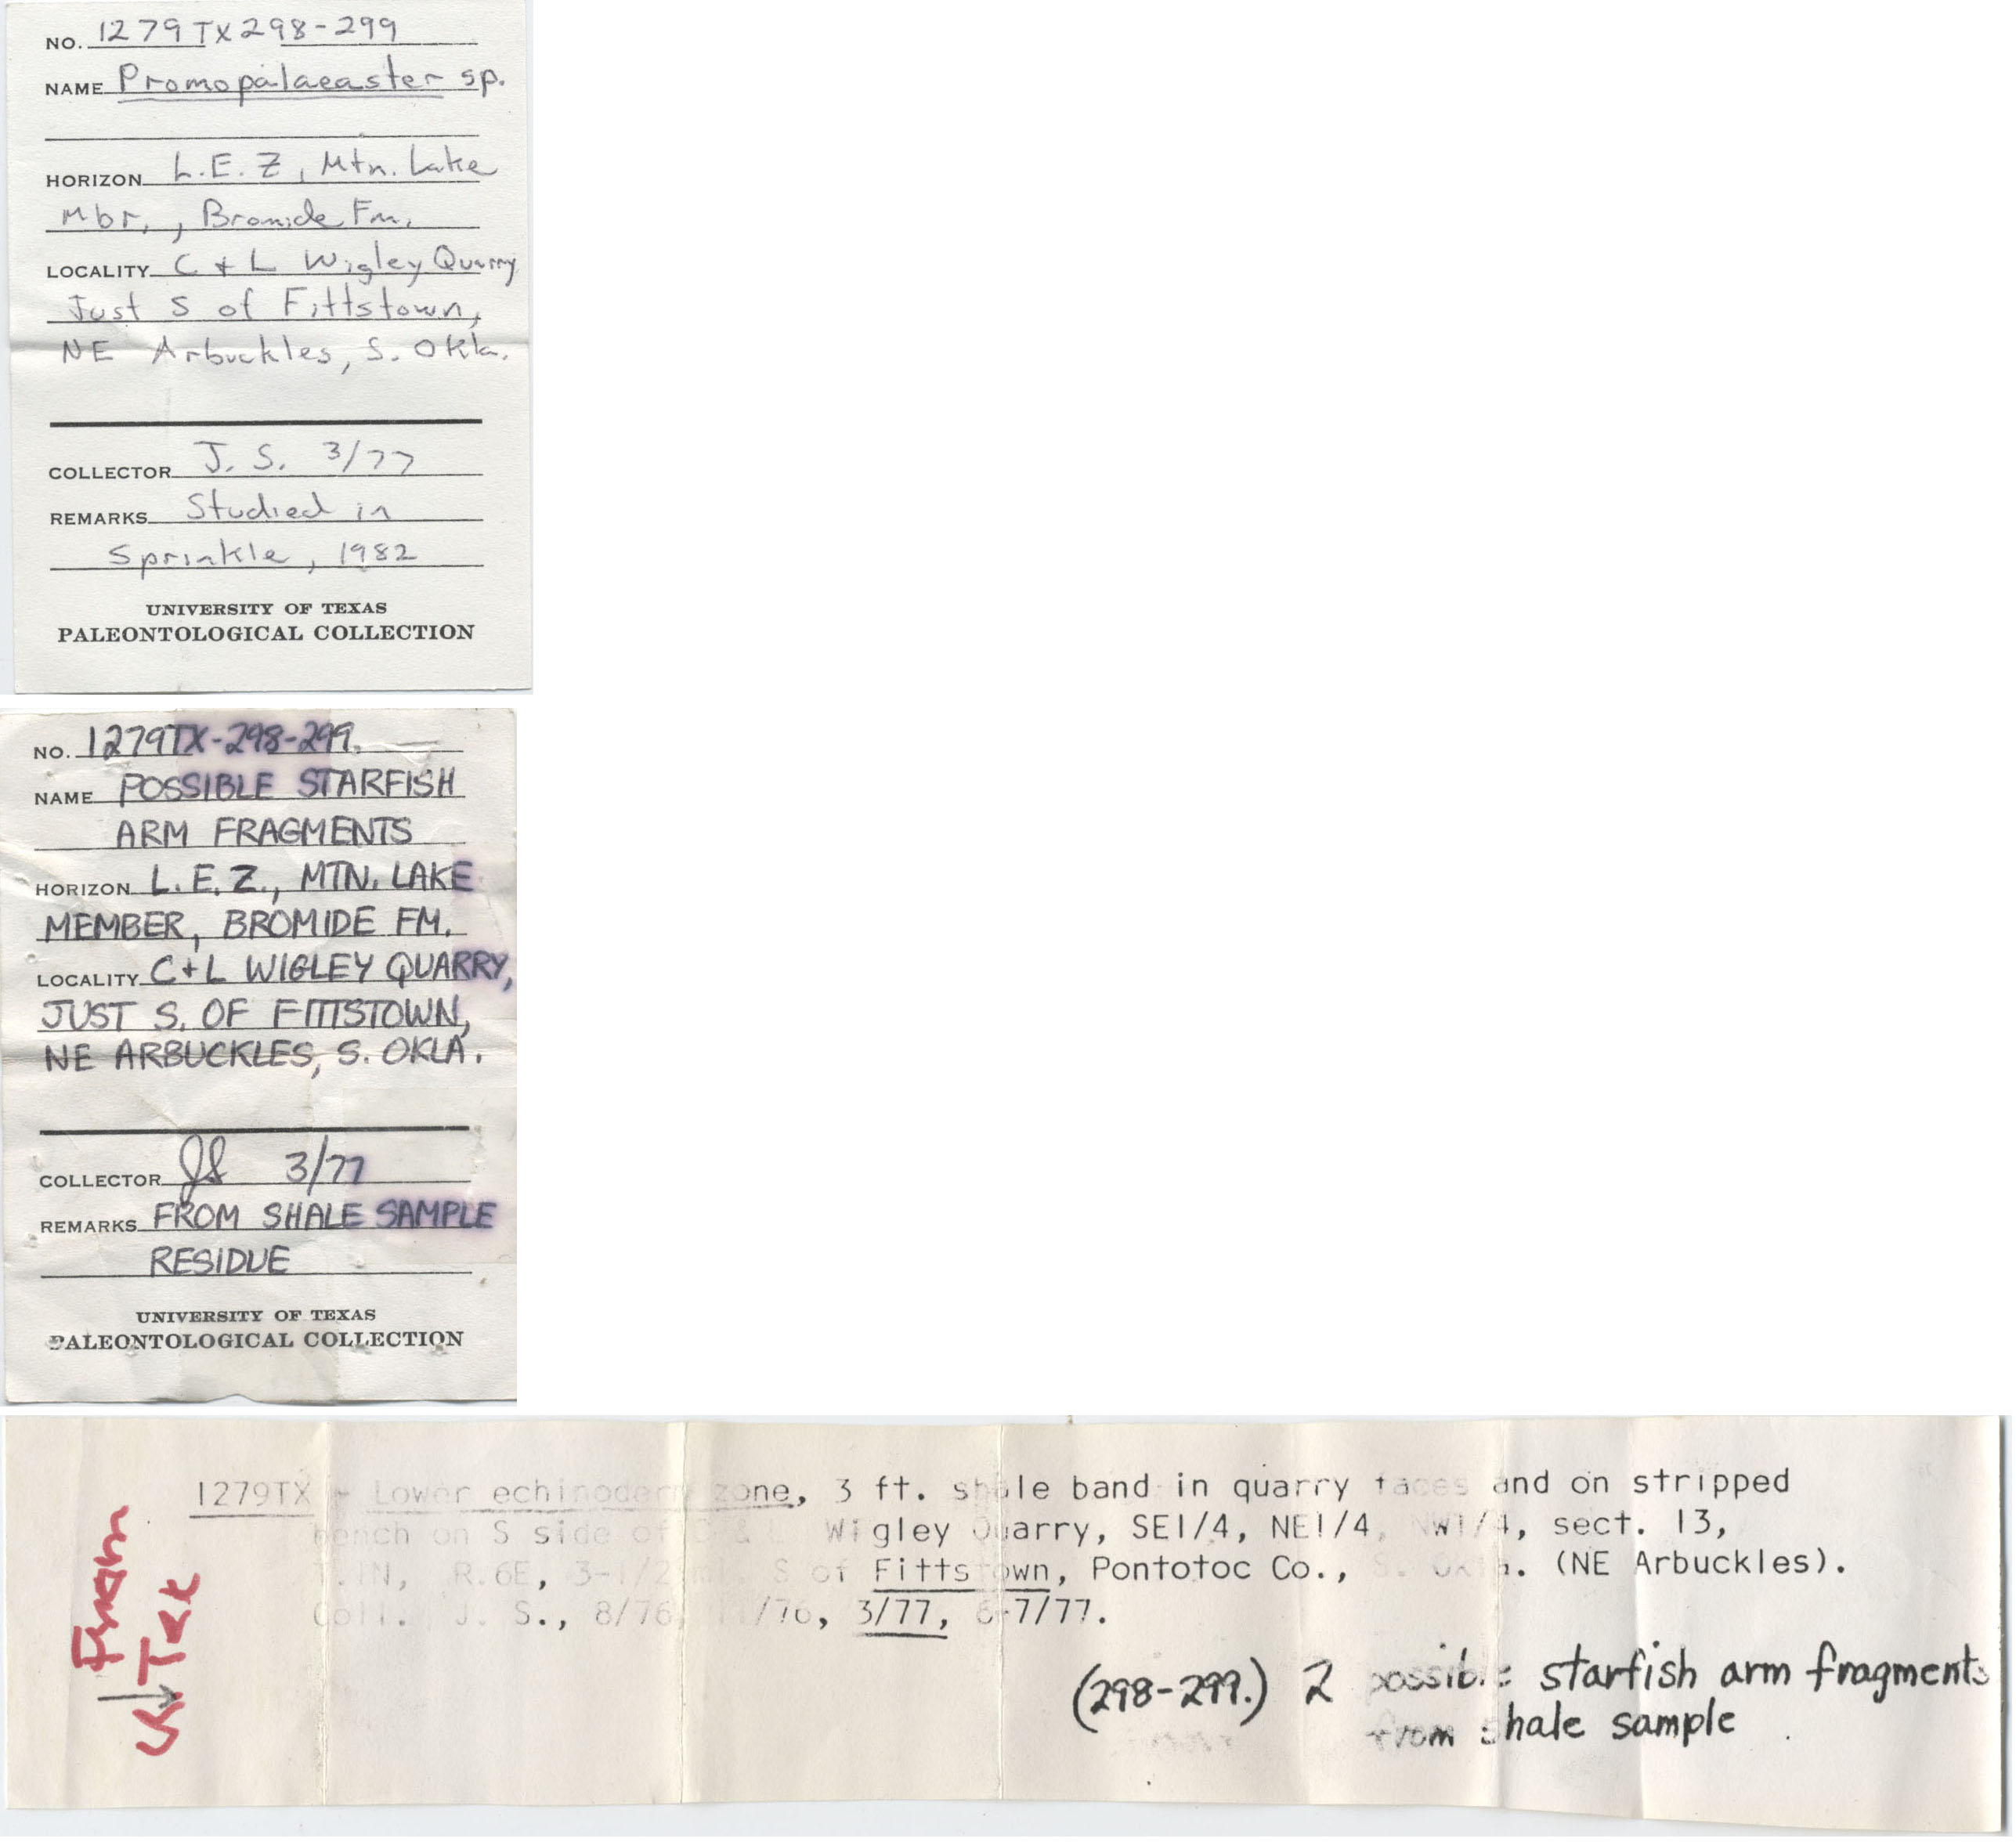 NO. 1279TX298-299
NAME Promopalaeaster sp.
HORIZON L.E.Z, Mtn. Lake
Mbr., Bromide Fm.
LOCALITY C + L Wigley Quarry
Just S of Fittstown,
NE Arbuckles, S. Okla.
COLLECTOR J. S. 3/77
REMARKS Studied in
Sprinkle, 1982
UNIVERSITY OF TEXAS
PALEONTOLOGICAL COLLECTION
NO. 1279TX-298-299.
NAME POSSIBLE STARFISH
ARM FRAGMENTS
HORIZON L.E.Z., MTN. LAKE
MEMBER, BROMIDE FM.
LOCALITY C+L WIGLEY QUARRY,
JUST S. OF FITTSTOWN,
NE ARBUCKLES, S. OKLA.
COLLECTOR JS 3/77
REMARKS FROM SHALE SAMPLE
RESIDUE
UNIVERSITY OF TEXAS
PALEONTOLOGICAL COLLECTION
1279TX - Lower echinoderm zone, 3 ft. shale band in quarry faces and on stripped
bench on S side of C & L Wigley Quarry, SE1/4, NE1/4, NW1/4, sect. 13,
T.1N, R.6E, 3-1/2 mi. S of Fittstown, Pontotoc Co., S. Okla. (NE Arbuckles).
Coll. J. S., 8/76, 11/76, 3/77, 6-7/77.
(298-299.) 2 possible starfish arm fragments
from shale sample